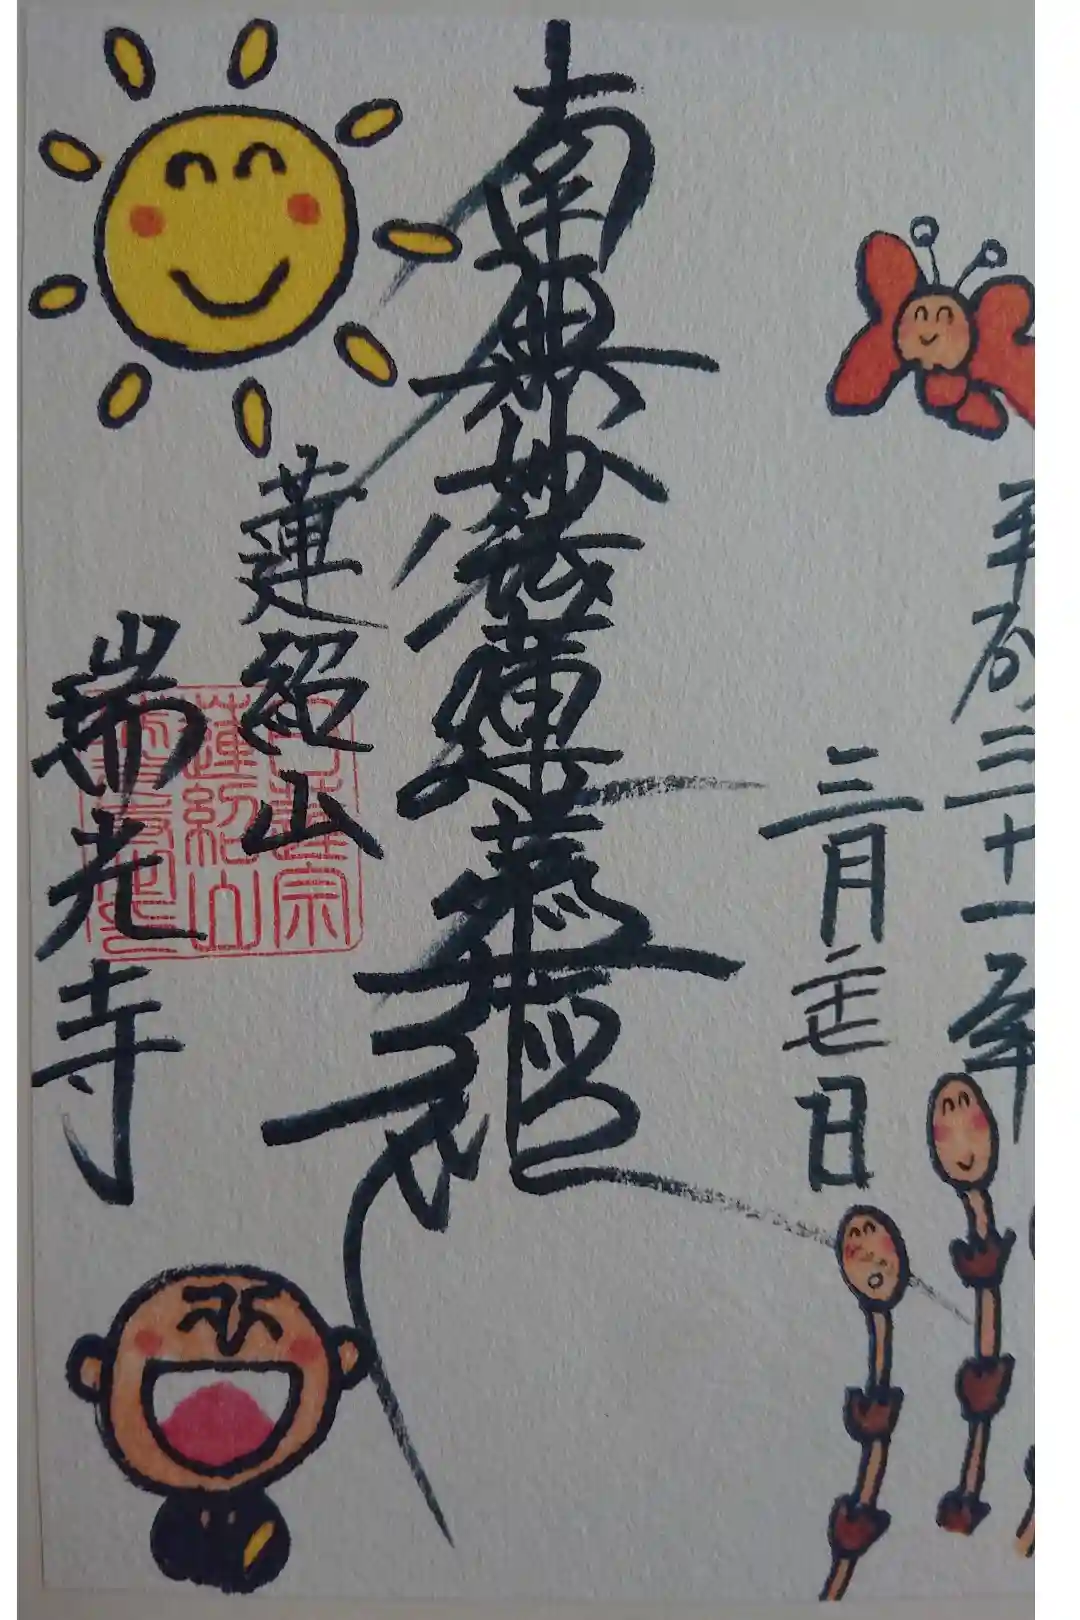 平成三十一年
三月二十七日
南無妙法蓮華経
蓮紹山
瑞光寺
日蓮宗
蓮紹山